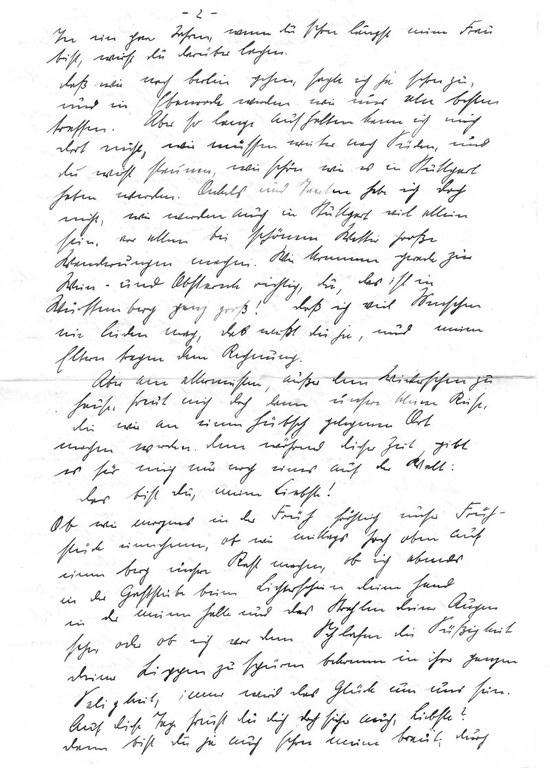 - 2 -
In ein paar Jahren, wenn du schon längst meine Frau
bist, wirst du darüber lachen.
daß wir nach Berlin gehen, sagte ich ja schon zu,
und in Eberswalde werden wir uns am besten
treffen. Aber so lange aufhalten kann ich mich
dort nicht, wir müssen weiter nach Süden, und
du wirst staunen, wie schön wir es in Stuttgart
haben werden. Onkels und Tanten habe ich dort
nicht, wir werden auch in Stuttgart viel allein
sein, vor allem bei schönem Wetter große
Wanderungen machen. Wir kommen gerade zur
Wein- und Obsternte richtig, du, das ist in
Württemberg ganz groß! daß ich viel Menschen
nie leiden mag, das weißt du ja, und meine
Eltern tragen dem Rechnung.
Aber am allermeisten, außer dem Wiedersehen zu
Hause, freut mich doch dann unsere kleine Reise,
die wir an einen hübsch gelegenen Ort
machen werden. denn während dieser Zeit gibt
es für mich nur noch eines auf der Welt:
das bist du, meine Liebste!
Ob wir morgens in der Früh fröhlich unser Früh-
stück einnehmen, ob wir mittags hoch oben auf
einem Berg unsere Rast machen, ob ich abends
in der Gaststube beim Lichterschein deine Hand
in der meinen halte und das Strahlen deiner Augen
sehe, oder ob ich vor dem Schlafen die Süßigkeit
deiner Lippen zu spüren bekomme in ihrer ganzen
Seligkeit, immer wird das Glück um uns sein.
Auf diese Tage freust du dich doch sicher auch, Liebste?
dann bist du ja auch schon meine Braut, durch